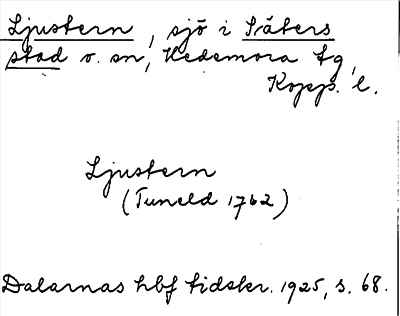 Ljustern, sjö i Säters
stad o. sn, Hedemora tg,
Kopp. l.
Ljustern
(Tuneld 1762)
Dalarnas hbf tidskr. 1925, s. 68.